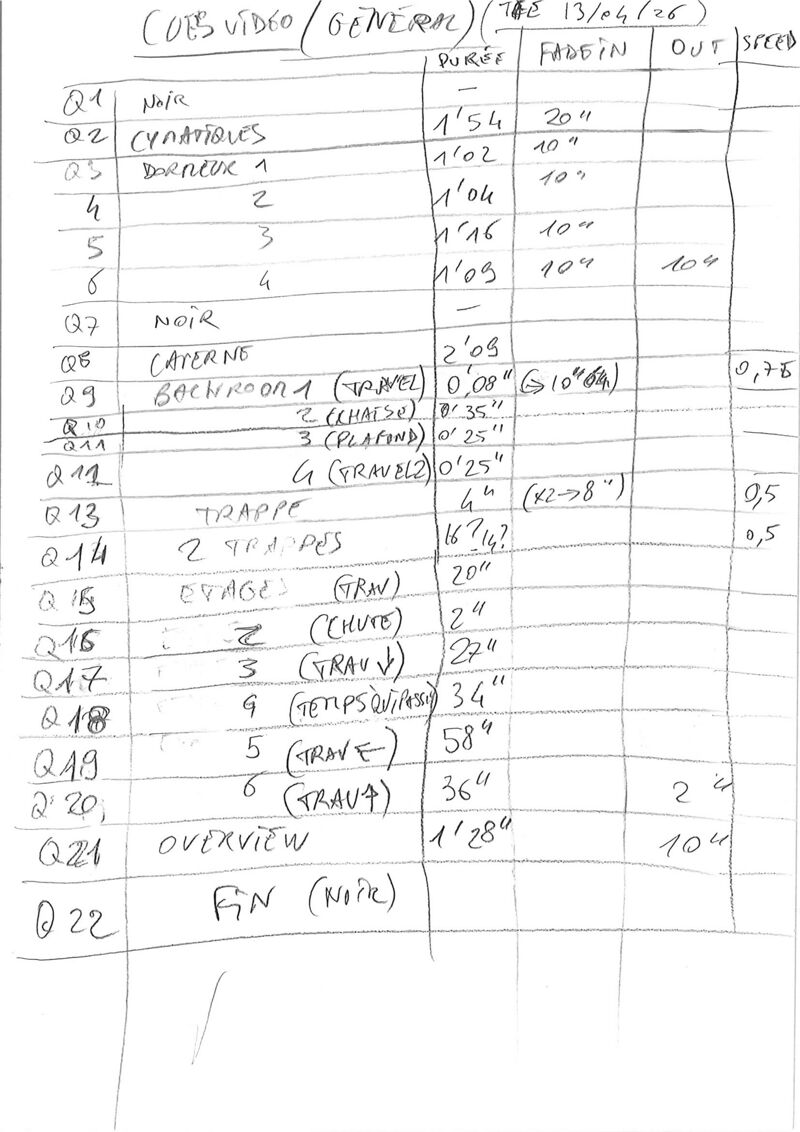 CUES VIDÉO / (GÉNÉRAL) (TAE 13/04/26)
DURÉE FADEIN OUT SPEED
Q1 NOIR —
Q2 CYMATIQUES 1'54 20"
Q3 DORMEUR 1 1'02 10"
4 2 1'04 10"
5 3 1'16 10"
6 4 1'09 10" 10"
Q7 NOIR —
Q8 CAVERNE 2'09
Q9 BACKROOM 1 (TRAVEL) 0'08" (→ 10" 0,75
Q10 2 (CHAISE) 0'35"
Q11 3 (PLAFOND) 0'25"
Q12 4 (TRAVEL2) 0'25"
Q13 TRAPPE 4" (x2→8") 0,5
Q14 2 TRAPPES 16?14? 0,5
Q15 ETAGES (TRAV) 20"
Q16 2 (CHUTE) 2"
Q17 3 (TRAV↓) 27"
Q18 4 (TEMPSQUIPASSE) 34"
Q19 5 (TRAV←) 58"
Q20 6 (TRAV↑) 36" 2"
Q21 OVERVIEW 1'28" 10"
Q22 FIN (NOIR)